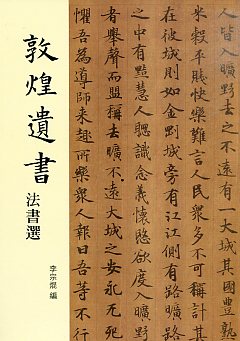 敦煌遺書
法書選
李宗焜 編
人皆入曠野之不遠有一大城其國豐熟
米穀平賤快樂難言人民眾多不可稱計其
在彼城則如金剛城旁有江江側有路曠路
之中有黠慧人聰識念義懷愍欲度入曠野
者舉聲而稱去曠不遠大城之安永无死
懼吾為導師来趣所樂眾人報曰吾等不行